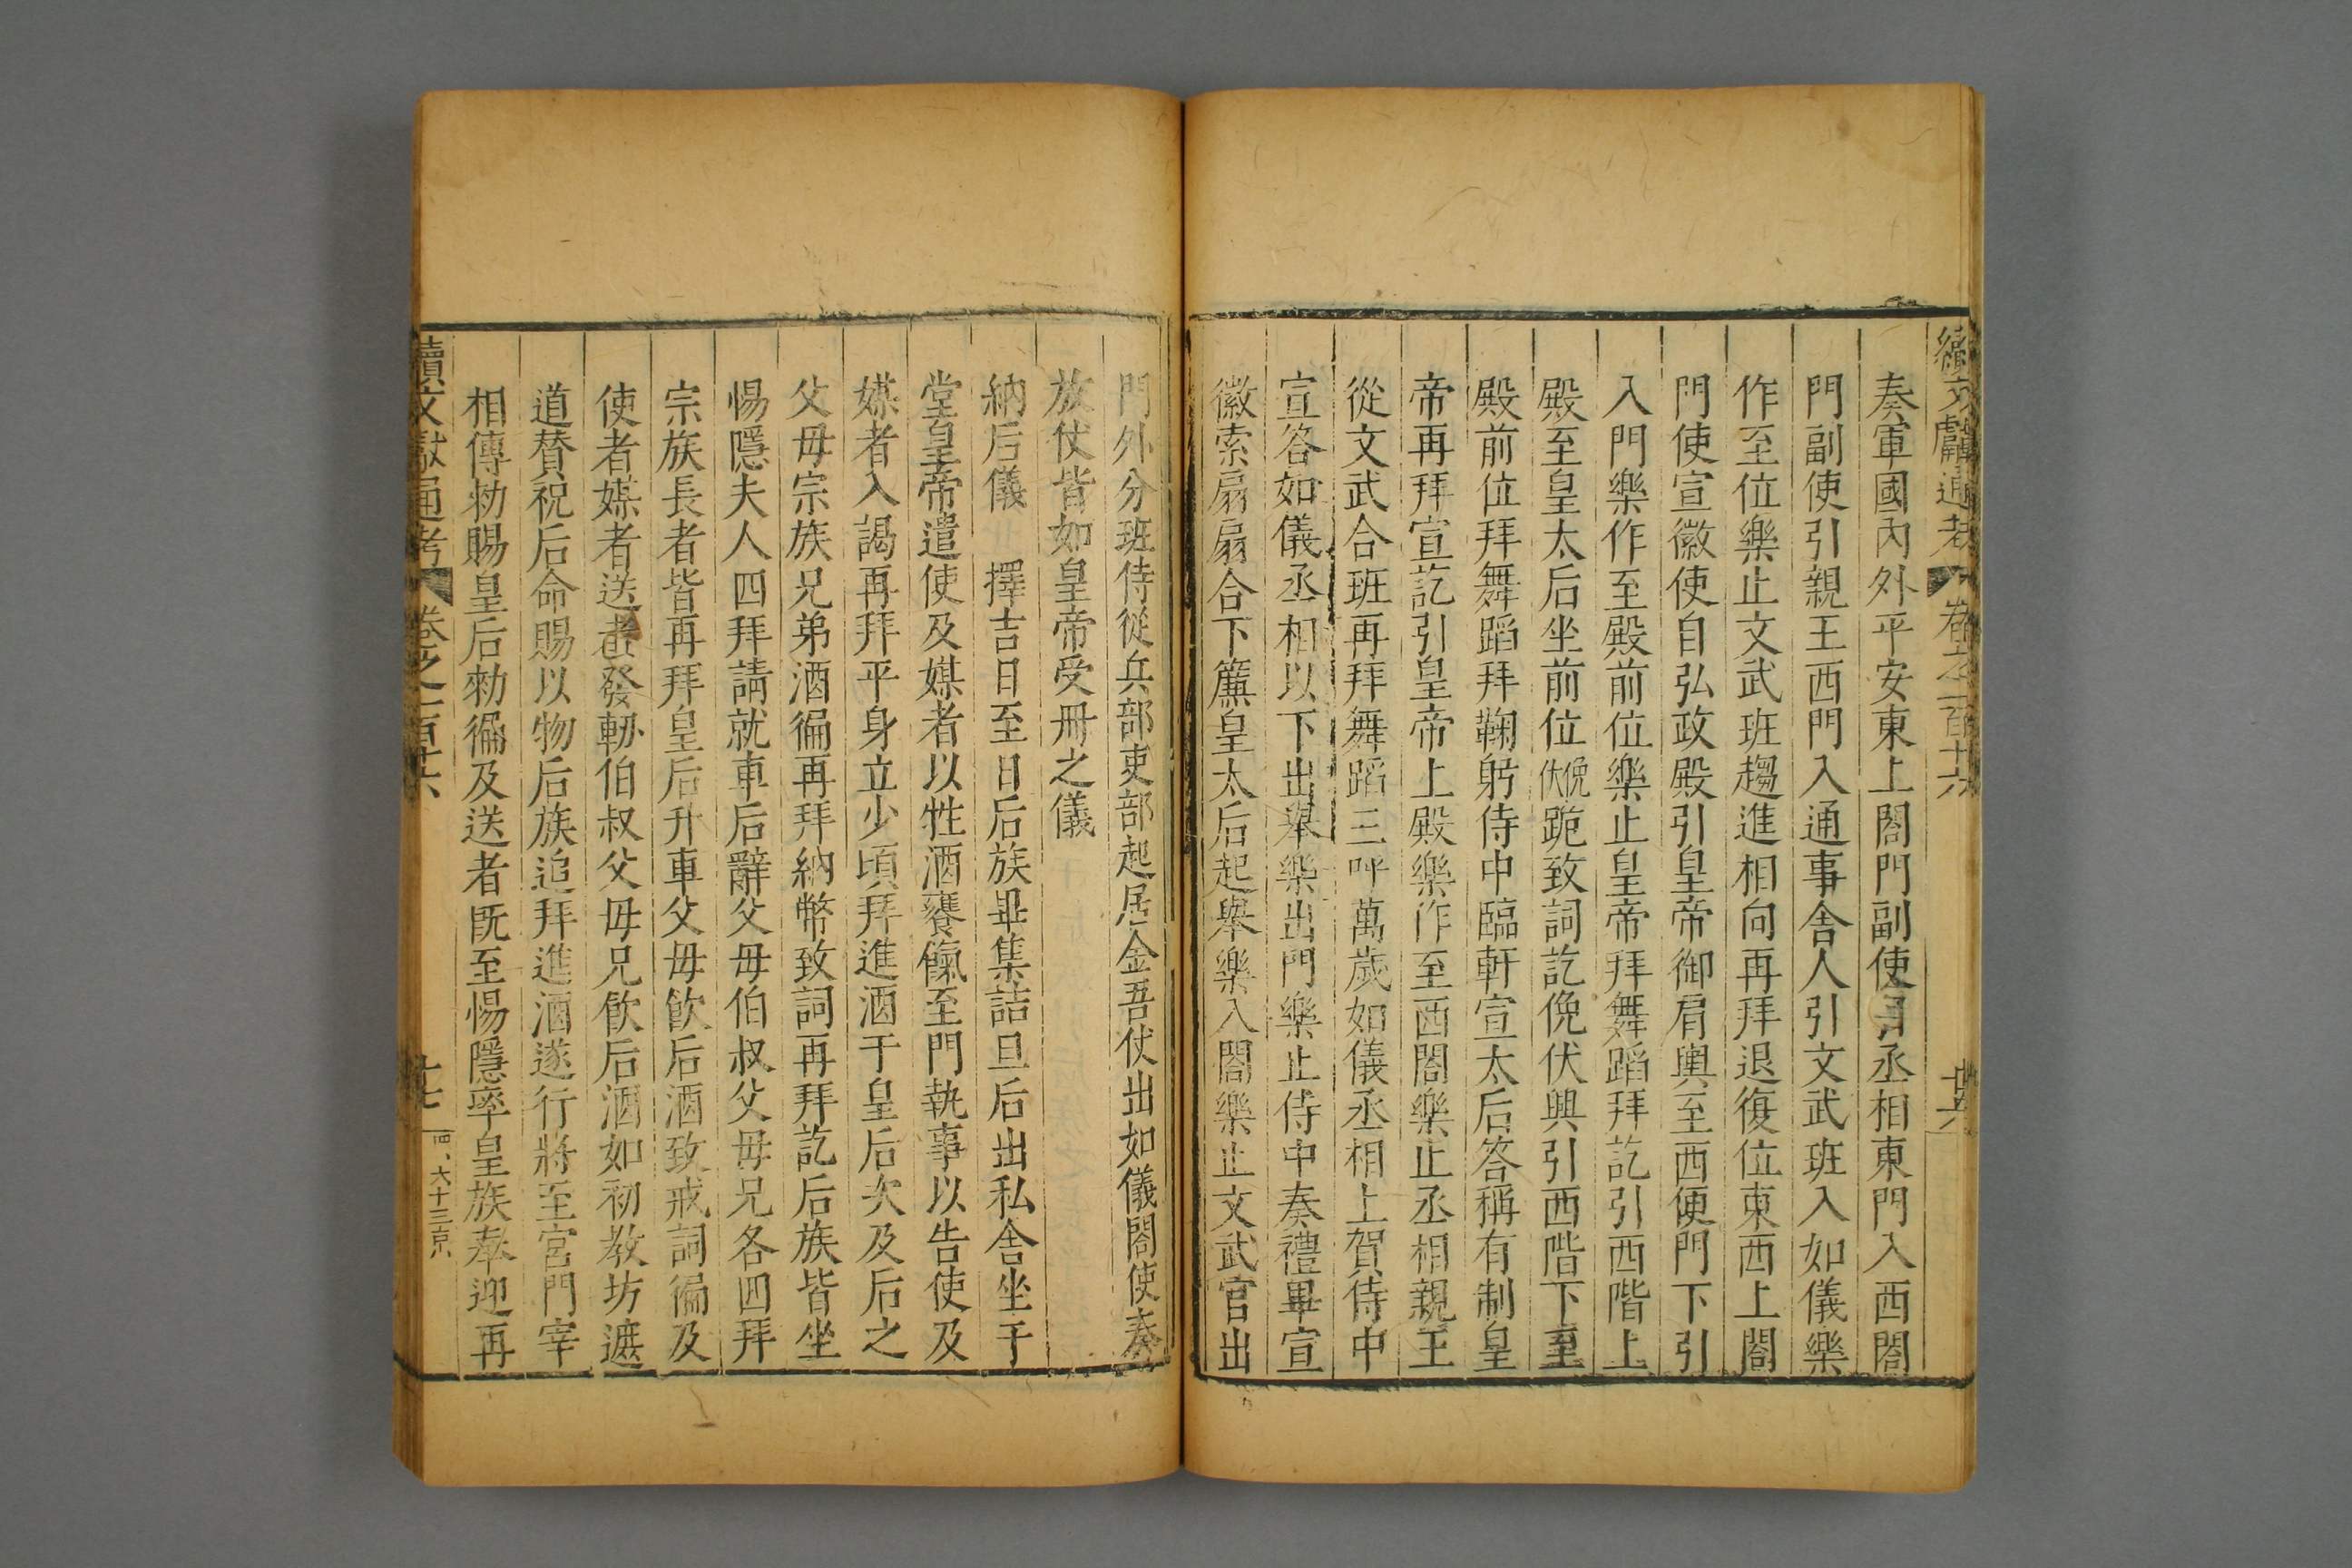 續文獻通考 卷之一百十六 廿六
奏軍國內外平安東上閤門副使引丞相東門入西閤
門副使引親王西門入通事舍人引文武班入如儀樂
作至位樂止文武班趨進相向再拜退復位東西上閤
門使宣徽使自弘政殿引皇帝御肩輿至西便門下引
入門樂作至殿前位樂止皇帝拜舞蹈拜訖引西階上
殿至皇太后坐前位俛伏跪致詞訖俛伏興引西階下至
殿前位拜舞蹈拜鞠躬侍中臨軒宣太后答稱有制皇
帝再拜宣訖引皇帝上殿樂作至西閤樂止丞相親王
從文武合班再拜舞蹈三呼萬歲如儀丞相上賀侍中
宣答如儀丞相以下出舉樂出門樂止侍中奏禮畢宣
徽索扇扇合下簾皇太后起舉樂入閤樂止文武官出
門外分班侍從兵部吏部起居金吾仗出如儀閤使奏
放仗皆如皇帝受冊之儀
納后儀 擇吉日至日后族畢集詰旦后出私舍坐于
堂皇帝遣使及媒者以牲酒饔餼至門執事以告使及
媒者入謁再拜平身立少頃拜進酒于皇后次及后之
父母宗族兄弟酒徧再拜納幣致詞再拜訖后族皆坐
惕隱夫人四拜請就車后辭父母伯叔父母兄各四拜
宗族長者皆再拜皇后升車父母飲后酒致戒詞徧及
使者媒者送者發軔伯叔父母兄飲后酒如初教坊遮
道贊祝后命賜以物后族追拜進酒遂行將至宮門宰
相傳勑賜皇后勑徧及送者既至惕隱率皇族奉迎再
續文獻通考 卷之一百十六 四、六十三京